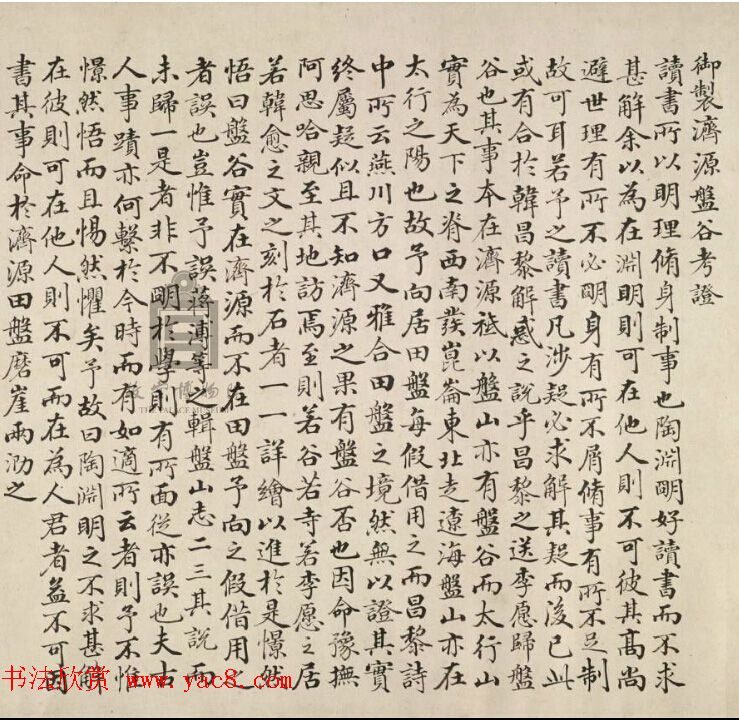 御製濟源盤谷考證
讀書所以明理脩身制事也陶淵明好讀書而不求
甚解余以為在淵明則可在他人則不可彼其高尚
避世理有所不必明身有所不屑脩事有所不足制
故可耳若予之讀書凡涉疑必求解其疑而後已此
或有合於韓昌黎解惑之說乎昌黎之送李愿歸盤
谷也其事本在濟源祗以盤山亦有盤谷而太行山
實為天下之脊西南發崑崙東北走遼海盤山亦在
太行之陽也故予向居田盤每假借用之而昌黎詩
中所云燕川方口又雅合田盤之境然無以證其實
終屬疑似且不知濟源之果有盤谷否也因命豫撫
阿思哈親至其地訪焉至則若谷若寺若李愿之居
若韓愈之文之刻於石者一一詳繪以進於是憬然
悟曰盤谷實在濟源而不在田盤予向之假借用之
者誤也豈惟予誤蔣溥等之輯盤山志二三其說而
未歸一是者非不明於學則有所面從亦誤也夫古
人事蹟亦何繫於今時而有如適所云者則予不惟
憬然悟而且惕然懼矣予故曰陶淵明之不求甚解
在彼則可在他人則不可而在為人君者益不可因
書其事命於濟源田盤磨崖兩泐之
THE PALACE MUSEUM
书法欣赏 www.yac8.com